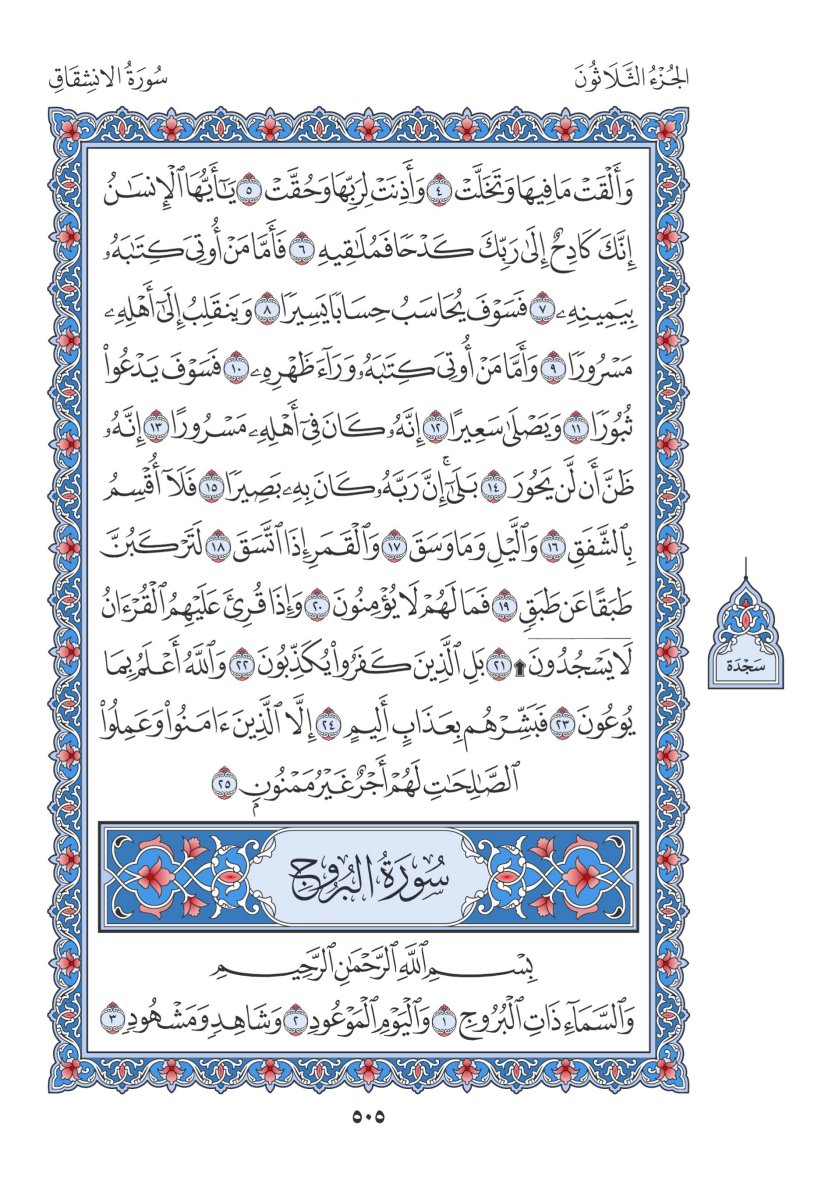 الجُزْءُ الثَّلَاثُونَ
سُورَةُ الانشِقَاقِ
وَأَلْقَتْ مَا فِيهَا وَتَخَلَّتْ ٤ وَأَذِنَتْ لِرَبِّهَا وَحُقَّتْ ٥ يَٰٓأَيُّهَا ٱلْإِنسَٰنُ
إِنَّكَ كَادِحٌ إِلَىٰ رَبِّكَ كَدْحًا فَمُلَٰقِيهِ ٦ فَأَمَّا مَنْ أُوتِىَ كِتَٰبَهُۥ
بِيَمِينِهِۦ ٧ فَسَوْفَ يُحَاسَبُ حِسَابًا يَسِيرًا ٨ وَيَنقَلِبُ إِلَىٰٓ أَهْلِهِۦ
مَسْرُورًا ٩ وَأَمَّا مَنْ أُوتِىَ كِتَٰبَهُۥ وَرَآءَ ظَهْرِهِۦ ١٠ فَسَوْفَ يَدْعُوا۟
ثُبُورًا ١١ وَيَصْلَىٰ سَعِيرًا ١٢ إِنَّهُۥ كَانَ فِىٓ أَهْلِهِۦ مَسْرُورًا ١٣ إِنَّهُۥ
ظَنَّ أَن لَّن يَحُورَ ١٤ بَلَىٰٓۚ إِنَّ رَبَّهُۥ كَانَ بِهِۦ بَصِيرًا ١٥ فَلَآ أُقْسِمُ
بِٱلشَّفَقِ ١٦ وَٱلَّيْلِ وَمَا وَسَقَ ١٧ وَٱلْقَمَرِ إِذَا ٱتَّسَقَ ١٨ لَتَرْكَبُنَّ
طَبَقًا عَن طَبَقٍ ١٩ فَمَا لَهُمْ لَا يُؤْمِنُونَ ٢٠ وَإِذَا قُرِئَ عَلَيْهِمُ ٱلْقُرْءَانُ
لَا يَسْجُدُونَ ٢١ بَلِ ٱلَّذِينَ كَفَرُوا۟ يُكَذِّبُونَ ٢٢ وَٱللَّهُ أَعْلَمُ بِمَا
سَجْدَة
يُوعُونَ ٢٣ فَبَشِّرْهُم بِعَذَابٍ أَلِيمٍ ٢٤ إِلَّا ٱلَّذِينَ ءَامَنُوا۟ وَعَمِلُوا۟
ٱلصَّٰلِحَٰتِ لَهُمْ أَجْرٌ غَيْرُ مَمْنُونٍۭ ٢٥
سُورَةُ البُرُوجِ
بِسْمِ ٱللَّهِ ٱلرَّحْمَٰنِ ٱلرَّحِيمِ
وَٱلسَّمَآءِ ذَاتِ ٱلْبُرُوجِ ١ وَٱلْيَوْمِ ٱلْمَوْعُودِ ٢ وَشَاهِدٍ وَمَشْهُودٍ ٣
٥٠٥